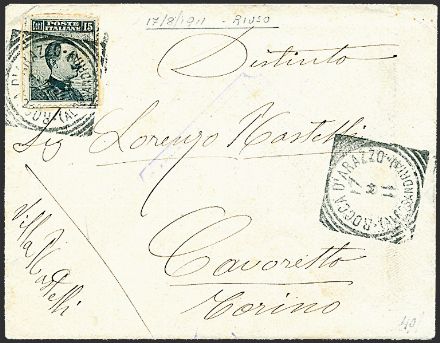 17/8/1911 - Riuso
POSTE ITALIANE 15
Distinto
Sig Lorenzo Rastelli
ROCCA D'ARAZZO
17 8 11
Cavoretto
Torino
Villa Rastelli
40